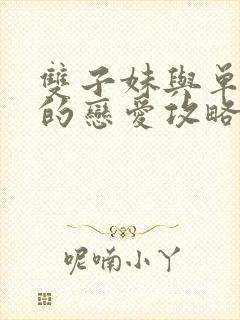 雙子妹與單
的戀愛攻略
呢喃小丫